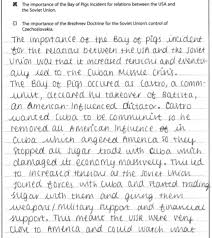 The importance of the Bay of Pigs Incident for relations between the USA and
the Soviet Union.
The importance of the Brezhnev Doctrine for the Soviet Union's control of
Czechoslovakia.
The importance of the Bay of pigs incident
for the relations between the USA and the Soviet
Union was that it increased tensions and eventu-
ally led to the Cuban Missile Crisis.
The Bay of Pigs occured as Castro, a comm-
unist, declared his takeover of Batista,
an American-Influenced dictator. Castro
wanted Cuba to be communist so he
removed all American Influence in
Cuba which angered America so they
stopped all sugar trade with Cuba which
damaged its economy massively. This led
to increased tension as the Soviet Union
joined forces with Cuba and started trading
sugar with them and giving them
weapons/military support and financial
support. This meant the USSR were very
close to America and could watch what